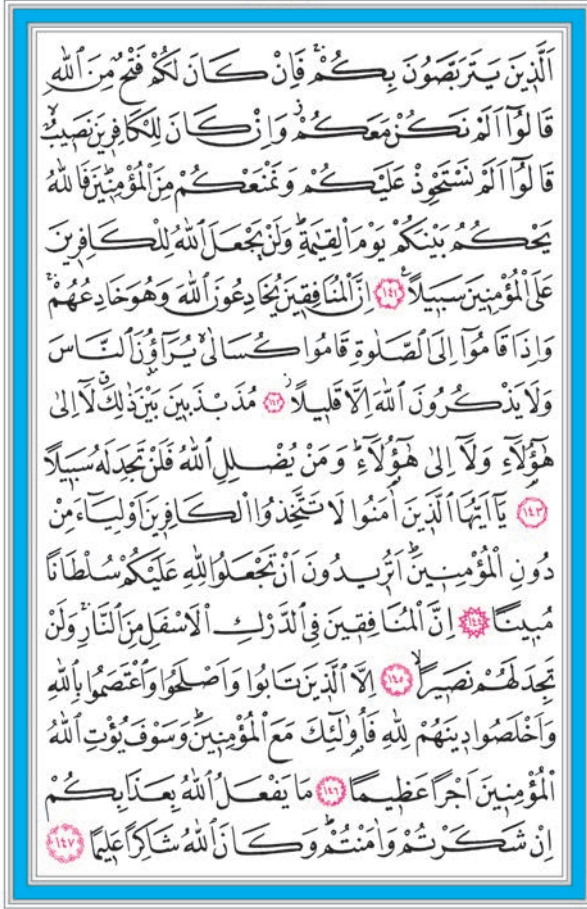 اَلَّذ۪ينَ يَتَرَبَّصُونَ بِكُمْۚ فَاِنْ كَانَ لَكُمْ فَتْحٌ مِنَ اللّٰهِ
قَالُٓوا اَلَمْ نَكُنْ مَعَكُمْۘ وَاِنْ كَانَ لِلْكَافِر۪ينَ نَص۪يبٌۙ
قَالُٓوا اَلَمْ نَسْتَحْوِذْ عَلَيْكُمْ وَنَمْنَعْكُمْ مِنَ الْمُؤْمِن۪ينَۜ فَاللّٰهُ
يَحْكُمُ بَيْنَكُمْ يَوْمَ الْقِيٰمَةِۜ وَلَنْ يَجْعَلَ اللّٰهُ لِلْكَافِر۪ينَ
عَلَى الْمُؤْمِن۪ينَ سَب۪يلًا۟ ﴿١٤١﴾ اِنَّ الْمُنَافِق۪ينَ يُخَادِعُونَ اللّٰهَ وَهُوَ خَادِعُهُمْۚ
وَاِذَا قَامُٓوا اِلَى الصَّلٰوةِ قَامُوا كُسَالٰىۙ يُرَٓاؤُ۫نَ النَّاسَ
وَلَا يَذْكُرُونَ اللّٰهَ اِلَّا قَل۪يلًاۘ ﴿١٤٢﴾ مُذَبْذَب۪ينَ بَيْنَ ذٰلِكَۗ لَٓا اِلٰى
هٰٓؤُ۬لَٓاءِ وَلَٓا اِلٰى هٰٓؤُ۬لَٓاءِۜ وَمَنْ يُضْلِلِ اللّٰهُ فَلَنْ تَجِدَ لَهُ سَب۪يلًا
﴿١٤٣﴾ يَٓا اَيُّهَا الَّذ۪ينَ اٰمَنُوا لَا تَتَّخِذُوا الْكَافِر۪ينَ اَوْلِيَٓاءَ مِنْ
دُونِ الْمُؤْمِن۪ينَۜ اَتُر۪يدُونَ اَنْ تَجْعَلُوا لِلّٰهِ عَلَيْكُمْ سُلْطَانًا
مُب۪ينًا ﴿١٤٤﴾ اِنَّ الْمُنَافِق۪ينَ فِي الدَّرْكِ الْاَسْفَلِ مِنَ النَّارِۚ وَلَنْ
تَجِدَ لَهُمْ نَص۪يرًاۙ ﴿١٤٥﴾ اِلَّا الَّذ۪ينَ تَابُوا وَاَصْلَحُوا وَاعْتَصَمُوا بِاللّٰهِ
وَاَخْلَصُوا د۪ينَهُمْ لِلّٰهِ فَاُو۬لٰٓئِكَ مَعَ الْمُؤْمِن۪ينَۜ وَسَوْفَ يُؤْتِ اللّٰهُ
الْمُؤْمِن۪ينَ اَجْرًا عَظ۪يمًا ﴿١٤٦﴾ مَا يَفْعَلُ اللّٰهُ بِعَذَابِكُمْ
اِنْ شَكَرْتُمْ وَاٰمَنْتُمْۜ وَكَانَ اللّٰهُ شَاكِرًا عَل۪يمًا ﴿١٤٧﴾